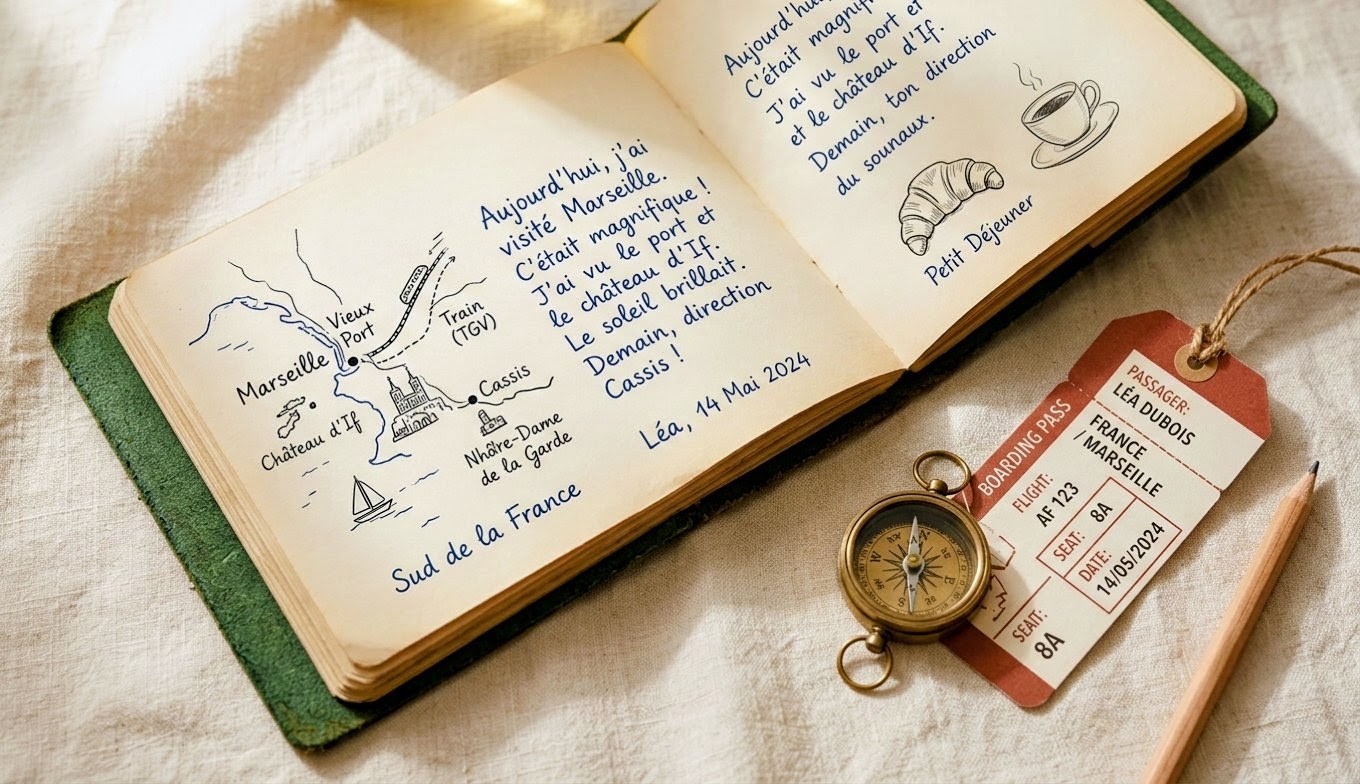 Vieux
Port
Train
(TGV)
Marseille
Château d'If
Cassis
Nhôtre-Dame
de la Garde
Sud de la France
Aujourd'hui, j'ai
visité Marseille.
C'était magnifique !
J'ai vu le port et
le château d'If.
Le soleil brillait.
Demain, direction
Cassis !
Léa, 14 Mai 2024
Aujourd'hui,
C'était
J'ai vu le port et
et le château d'If.
Demain, ton direction
du sounaux.
Petit Déjeuner
BOARDING PASS
PASSAGER:
LÉA DUBOIS
FRANCE
/ MARSEILLE
FLIGHT:
AF 123
SEAT:
8A
DATE:
14/05/2024
SEAIT:
8A
N
E
S
W